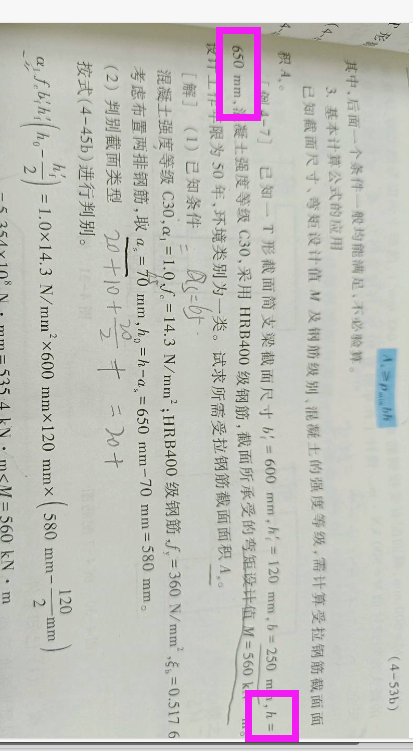 A_s ≥ ρ_min bh (4-53b)
其中,后面一个条件一般均能满足,不必验算。
3. 基本计算公式的应用
已知截面尺寸、弯矩设计值 M 及钢筋级别、混凝土的强度等级,需计算受拉钢筋截面面
积 A_s。
[例4-7] 已知一 T 形截面简支梁截面尺寸 b'_f = 600 mm, h'_f = 120 mm, b = 250 mm, h =
650 mm,混凝土强度等级 C30,采用 HRB400 级钢筋,截面所承受的弯矩设计值 M = 560 kN·m。
设计工作年限为 50 年,环境类别为一类。试求所需受拉钢筋截面面积 A_s。
[解] (1) 已知条件
混凝土强度等级 C30, α_1 = 1.0, f_c = 14.3 N/mm²; HRB400 级钢筋, f_y = 360 N/mm², ξ_b = 0.517 6
考虑布置两排钢筋,取 a_s = 70 mm, h_0 = h - a_s = 650 mm - 70 mm = 580 mm。
(2) 判别截面类型
20 + 10 + 20/2 + = 20 +
按式(4-45b)进行判别。
α_1 f_c b'_f h'_f (h_0 - h'_f/2) = 1.0×14.3 N/mm²×600 mm×120 mm×(580 mm - 120/2 mm)
= 5.354×10⁸ N·mm = 535.4 kN·m < M = 560 kN·m